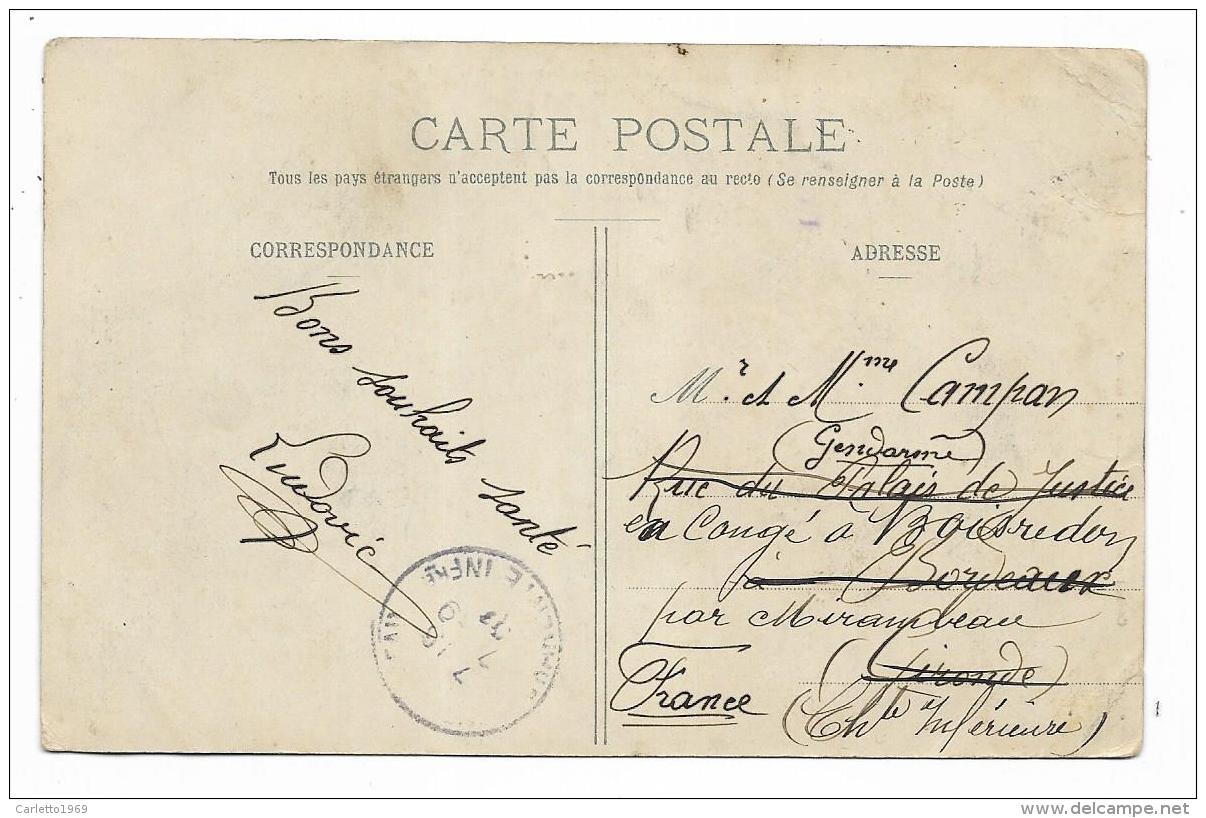 CARTE POSTALE
Tous les pays étrangers n'acceptent pas la correspondance au recto (Se renseigner à la Poste)
CORRESPONDANCE
Bons souhaits santé
Ludovic
ADRESSE
Mr. et Mme Campan
(Gendarme)
Rue du Palais de Justice
en Congé à Boisredon
à Bordeaux
par Mirambeau
(Gironde)
France
(Chte Inférieure)
INFRE
Carletto1969
www.delcampe.net